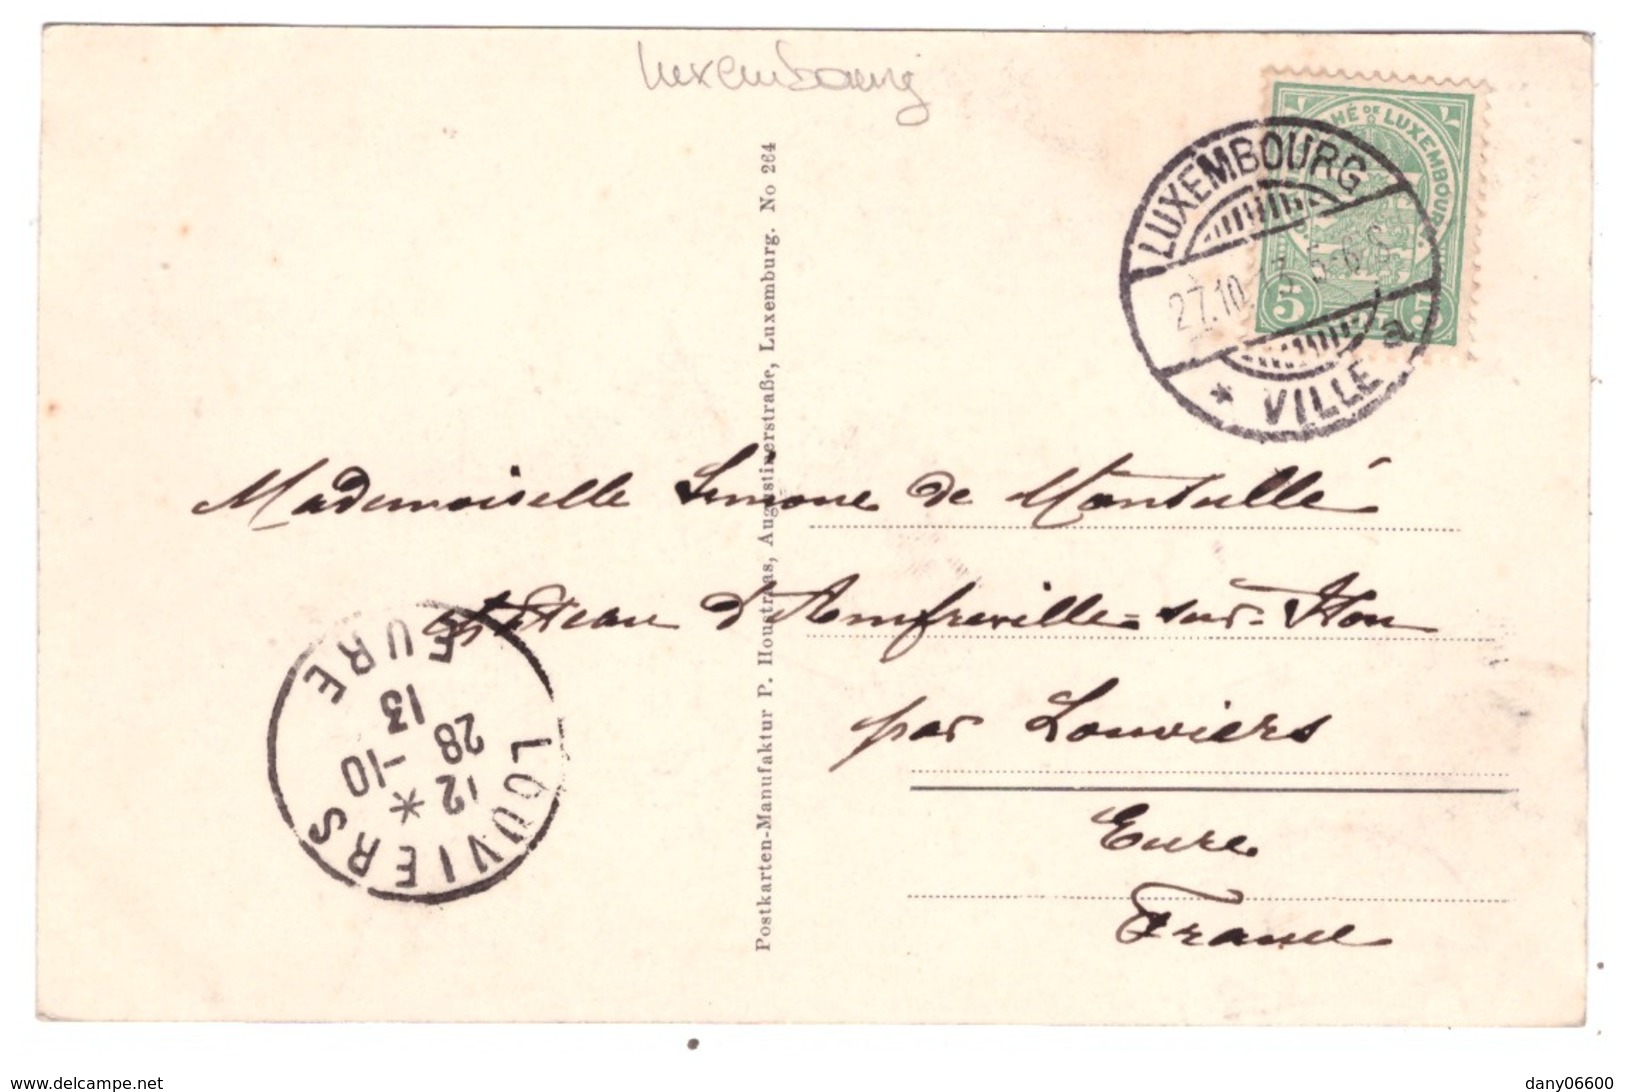 Luxembourg
HÉ DE LUXEMBOUR
5 5
LUXEMBOURG
27.10. 13. 5-6 S
a
* VILLE
Mademoiselle Simone de Montullé
château d'Amfreville-sur-Iton
par Louviers
Eure
France
LOUVIERS
EURE
*
12
28 -10
13
Postkarten-Manufaktur P. Houstraas, Augustinerstraße, Luxemburg. No 264
www.delcampe.net
dany06600